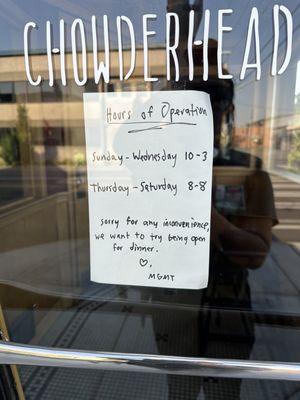 CHOWDERHEAD
Hours of Operation
Sunday - Wednesday 10-3
Thursday - Saturday 8-8
sorry for any inconvenience,
we want to try being open
for dinner.
♡,
MGMT